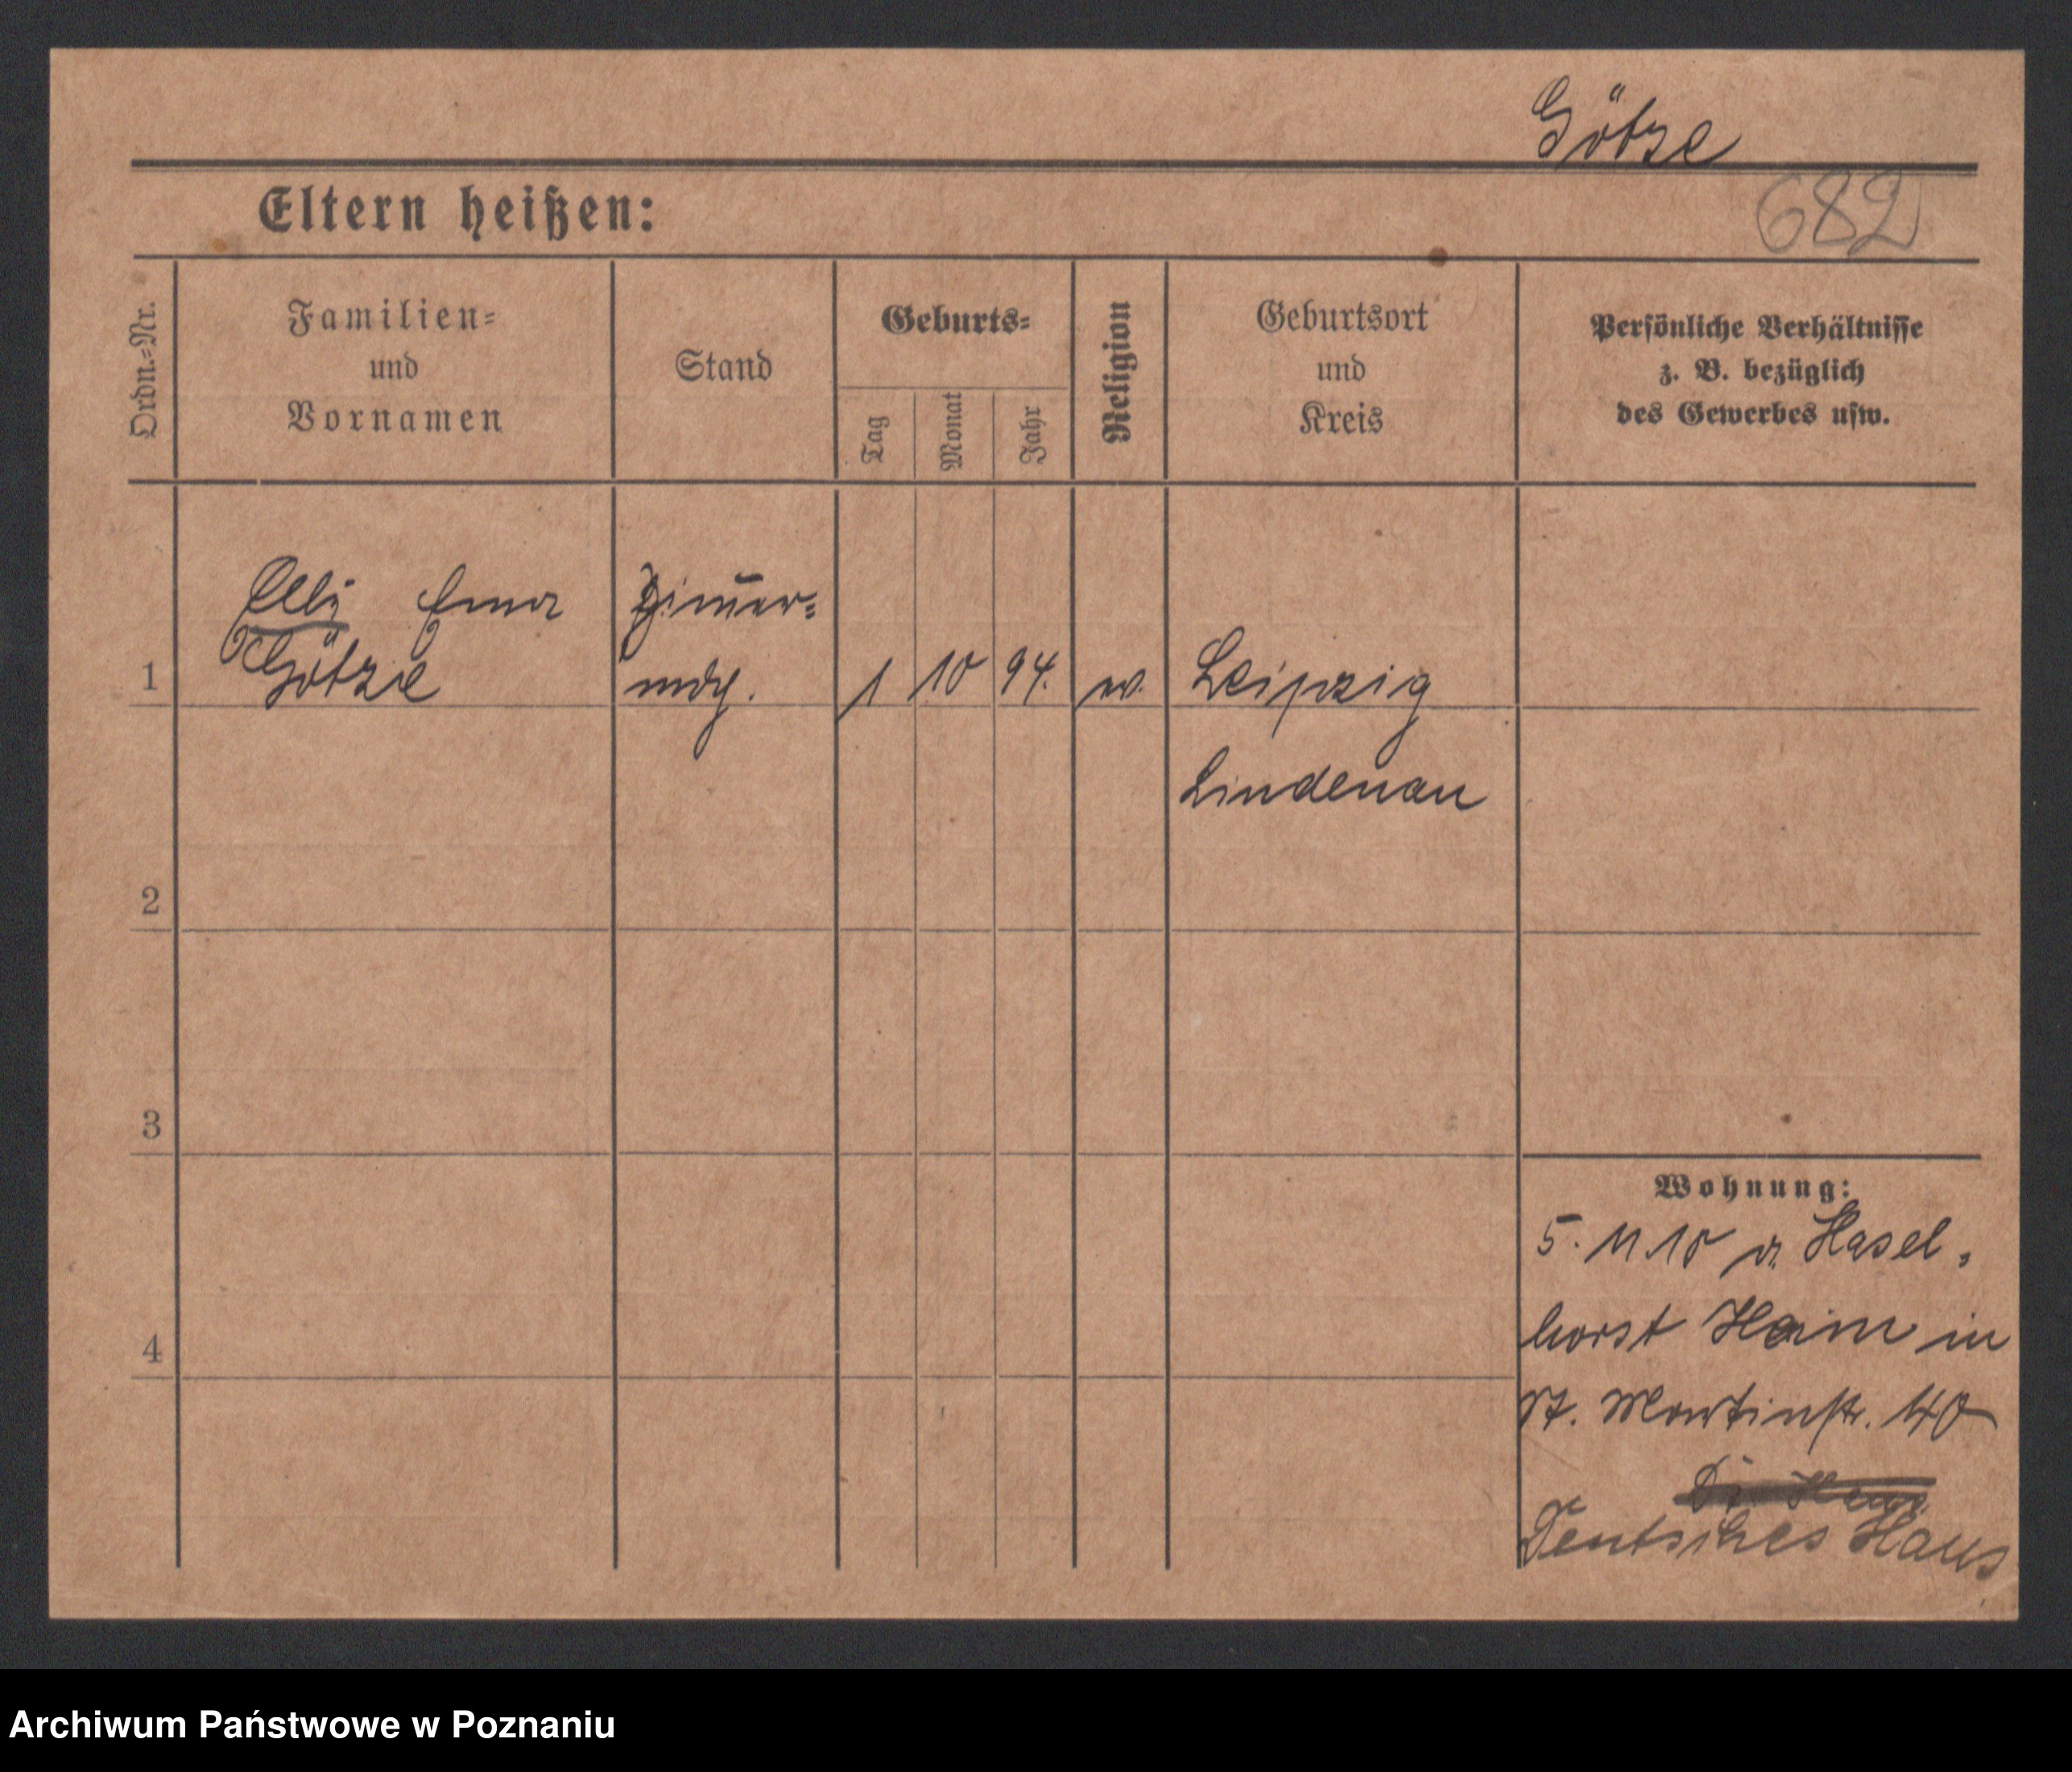 Götze
Eltern heißen:
682
Ordn.=Nr.
Familien=
und
Vornamen
Stand
Geburts=
Tag
Monat
Jahr
Religion
Geburtsort
und
Kreis
Persönliche Verhältnisse
z. B. bezüglich
des Gewerbes usw.
Elly Erna
Götze
Zim̄er=
mdch.
1
1
10
94.
ev.
Leipzig
Lindenau
2
3
4
Wohnung:
5. 11. 10 v. Hasel=
horst Heim in
St. Martinstr. 40
Deutsches Haus
Archiwum Państwowe w Poznaniu